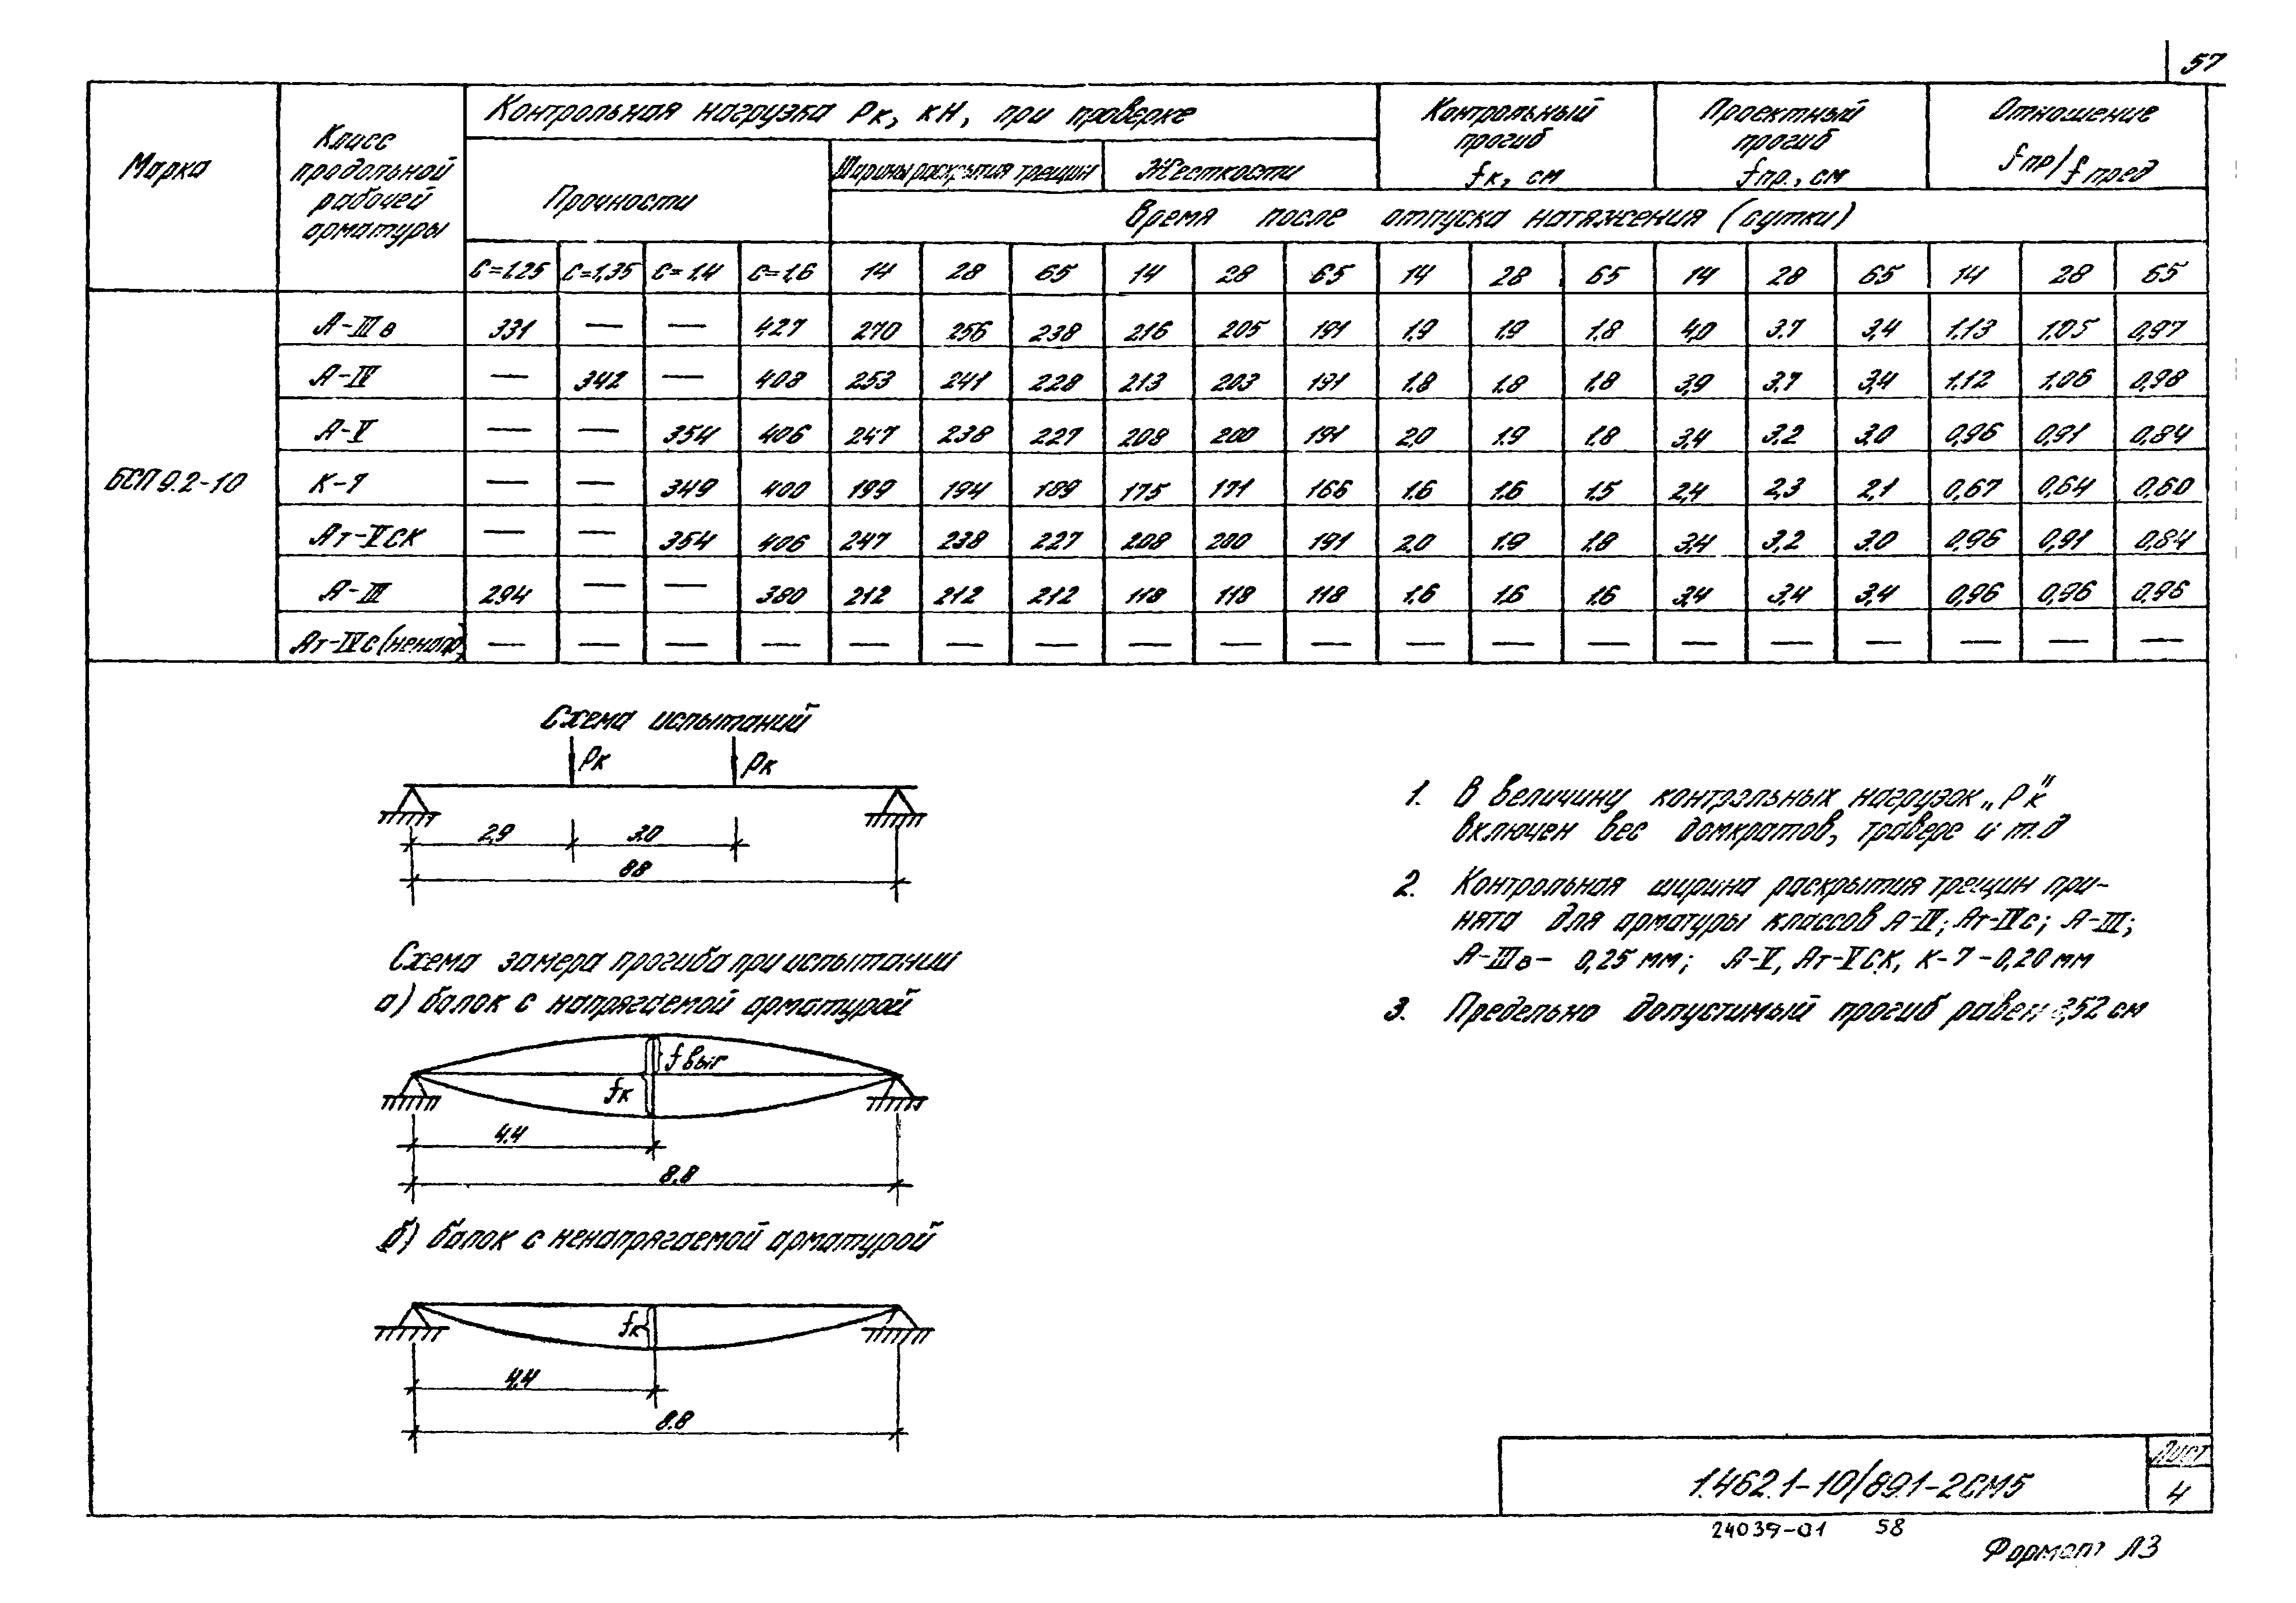 57
Марка
Класс продольной рабочей арматуры
Контрольная нагрузка Рк, кН, при проверке
Контрольный прогиб fк, см
Проектный прогиб fпр., см
Отношение fпр/fпред
Прочности
Ширины раскрытия трещин
Жесткости
Время после отпуска натяжения (сутки)
С=1.25 С=1,35 С=1.4 С=1,6 14 28 65 14 28 65 14 28 65 14 28 65 14 28 65
БСП 9.2-10
А-IIIв 331 — — 427 270 256 238 216 205 191 1,9 1,9 1.8 4,0 3.7 3,4 1.13 1,05 0,97
А-IV — 342 — 408 253 241 228 213 203 191 1.8 1.8 1.8 3,9 3.7 3,4 1.12 1,06 0,98
А-V — — 354 406 247 238 227 208 200 191 2,0 1.9 1.8 3,4 3.2 3,0 0,96 0,91 0,84
К-7 — — 349 400 199 194 189 175 171 166 1.6 1.6 1.5 2,4 2,3 2,1 0,67 0,64 0,60
Ат-VСК — — 354 406 247 238 227 208 200 191 2,0 1.9 1.8 3,4 3,2 3.0 0,96 0,91 0,84
А-III 294 — — 380 212 212 212 118 118 118 1.6 1,6 1.6 3,4 3,4 3,4 0,96 0,96 0,96
Ат-IVс (ненапр) — — — — — — — — — — — — — — — — — — —
Схема испытаний
Рк Рк
2,9 3.0
8.8
Схема замера прогиба при испытании
а) балок с напрягаемой арматурой
fвыг
fк
4.4
8.8
б) балок с ненапрягаемой арматурой
fк
4,4
8.8
1. В величину контрольных нагрузок „Рк"
включен вес домкратов, траверс и т.д
2. Контрольная ширина раскрытия трещин при-
нята для арматуры классов А-IV; Ат-IVс; А-III;
А-IIIв - 0,25 мм; А-V, Ат-VСК, К-7 - 0,20 мм
3. Предельно допустимый прогиб равен 3,52 см
1.462.1-10/89.1-2СМ5
Лист
4
24039-01 58
Формат А3